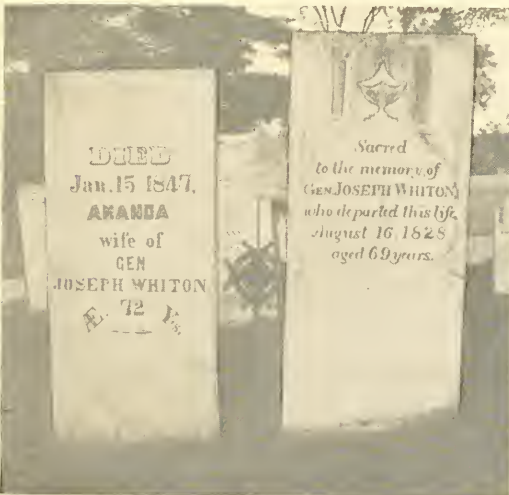 DIED
Jan. 15 1847,
AMANDA
wife of
GEN
JOSEPH WHITON
Æ. 72 Ys.
Sacred
to the memory of
GEN. JOSEPH WHITON,
who departed this life
August 16, 1828
aged 69 years.